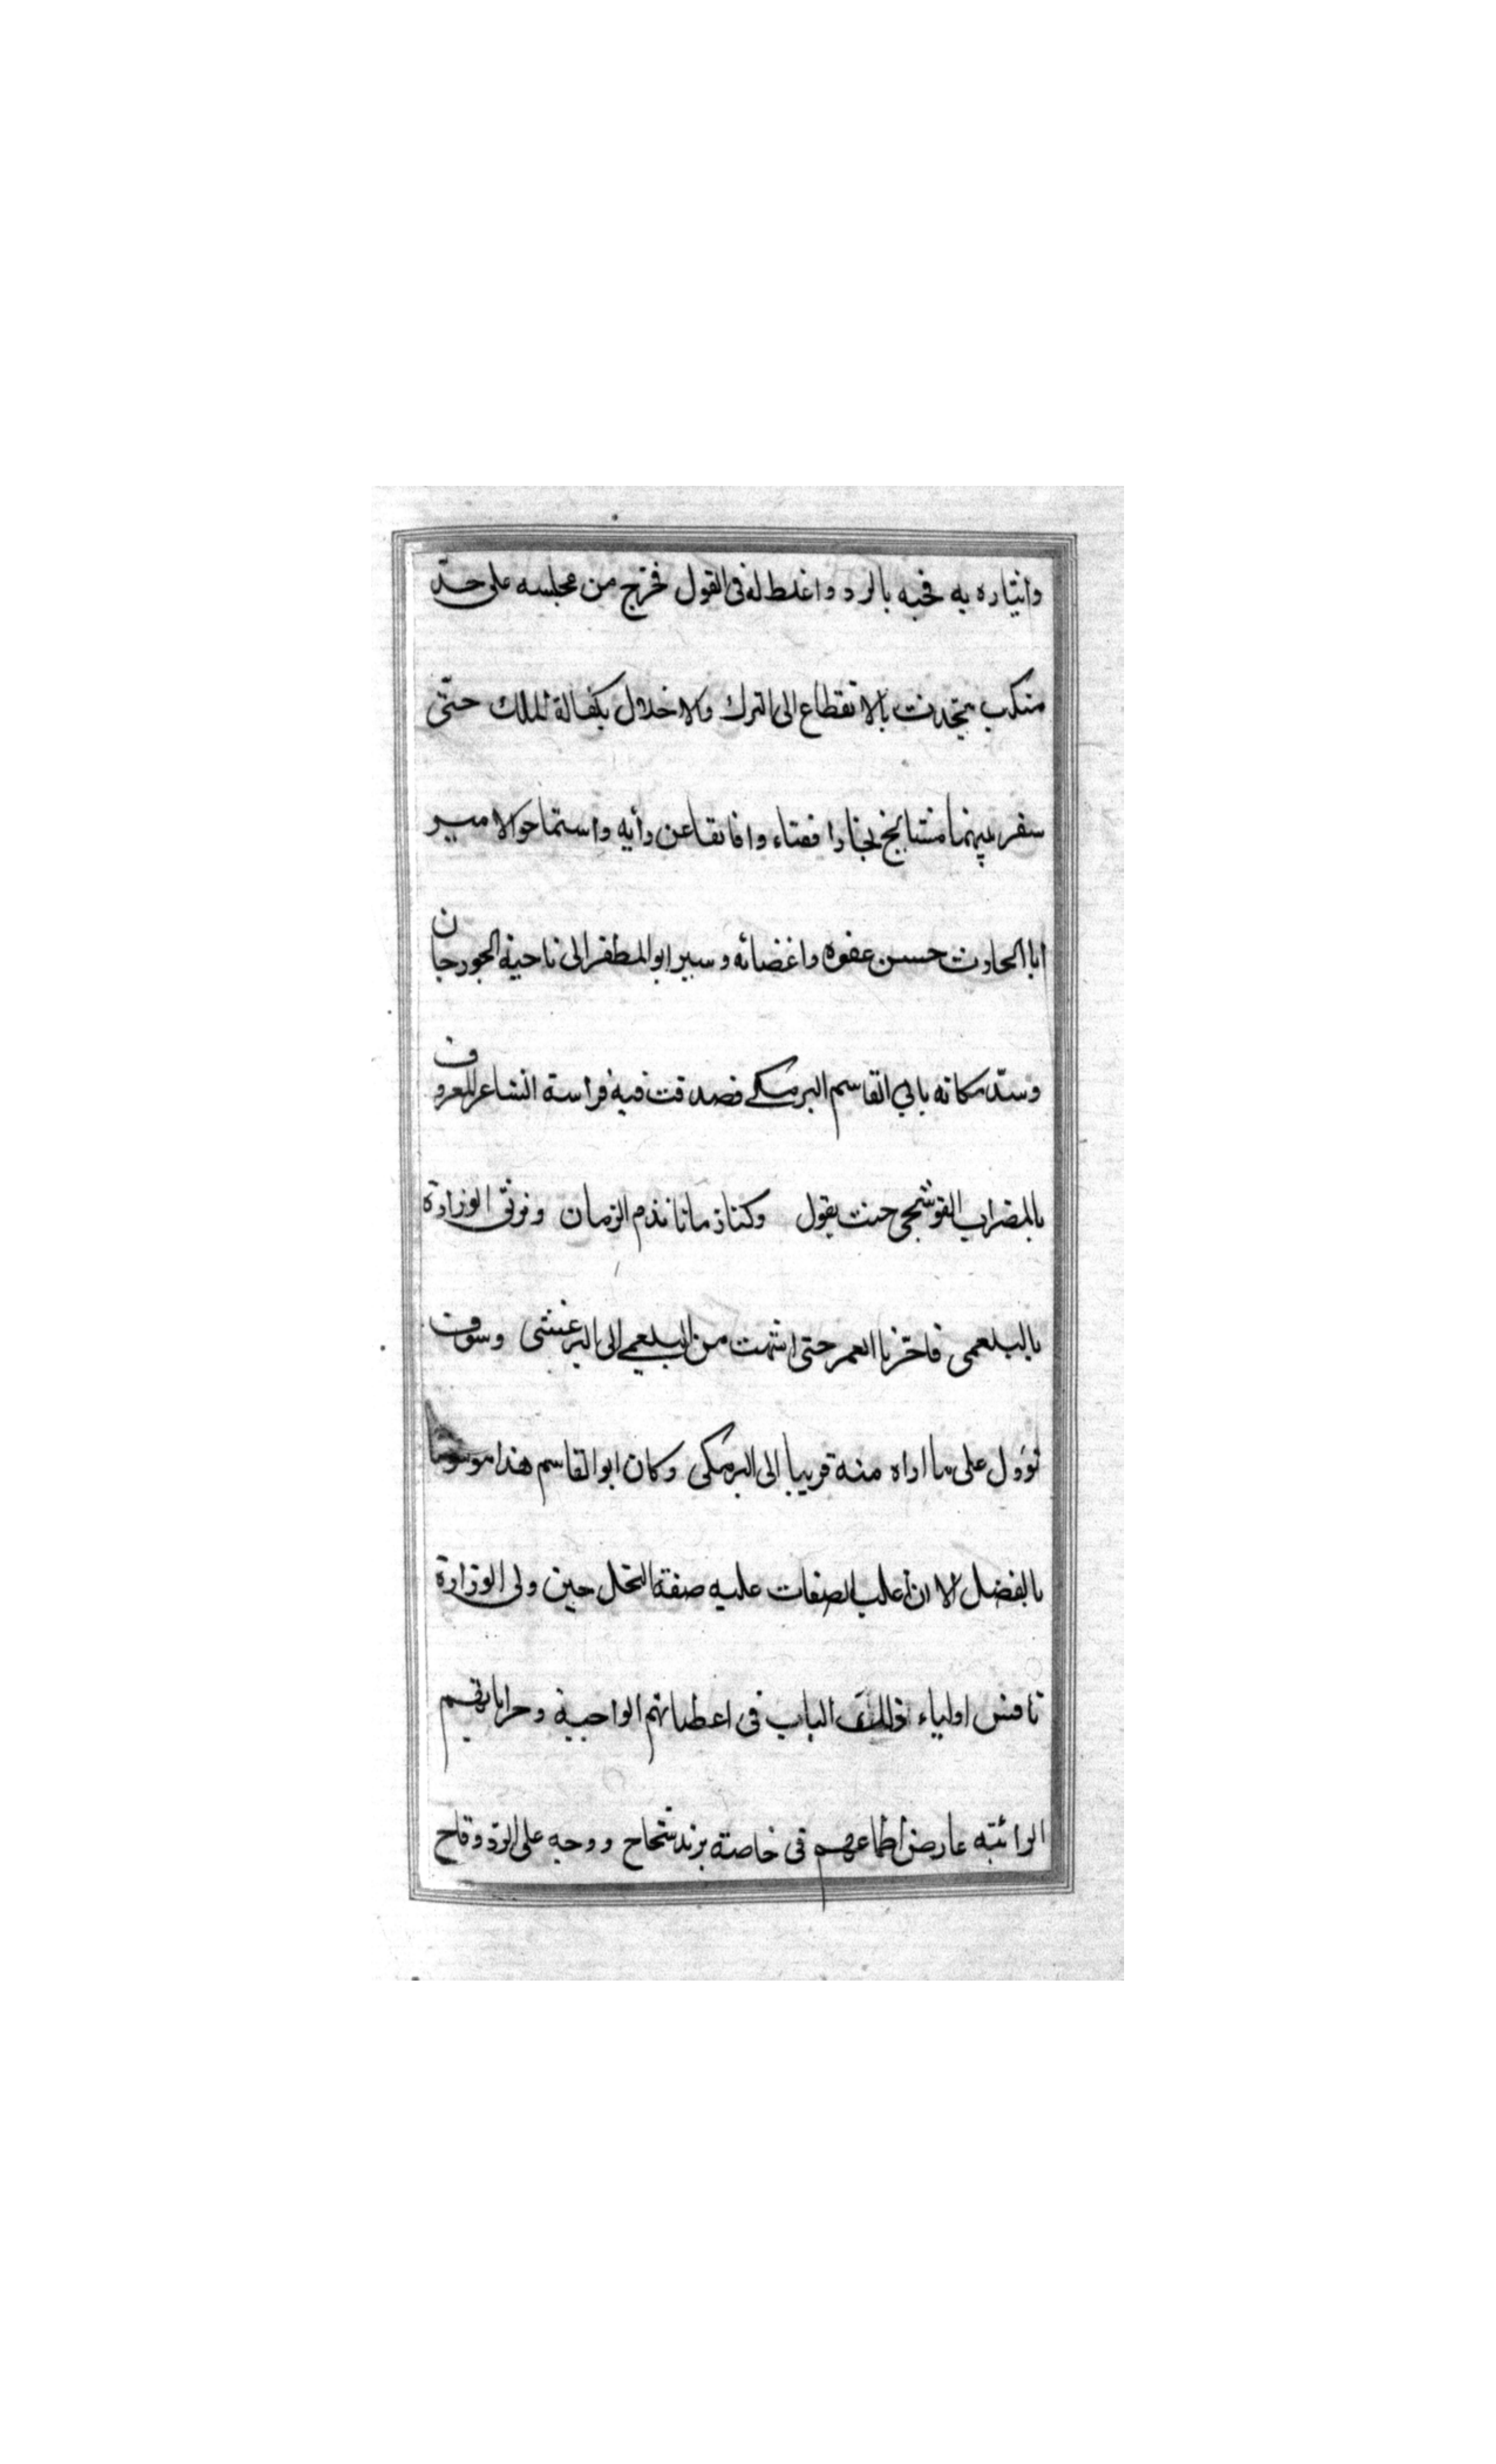 وانتياره به فجبه بالرد واغلظ له فى القول فخرج من مجلسه على حدّ
منكب يتحدث بالانقطاع الى الترك والاخلال بكفالة الملك حتّى
سفر بينهما مشايخ بخارا فقناء وافانقاعن رأيه واستماحوا الامير
ابا الحارث حسن عفوه واغضائه وسير ابو المظفر الى ناحية الجورجان
وسدّ مكانه بابى القاسم البرمكى فصدقت فيه فراسة الشاعر المعروف
بالمضراب القوشنجى حيث يقول وكنا زمانا نذم الزمان ونرثى الوزارة
بالبلعمى فاخّرنا العمر حتى انتهت من البلعمى الى البرغشى وسوف
تؤول على ما اراه منه قريبا الى البرمكى وكان ابو القاسم هذا موسوما
بالفضل الا ان اغلب الصفات عليه صفة البخل حين ولى الوزارة
نافس اولياء ذلك الباب فى اعطياتهم الواجبة وجراياتهم
الراتبة عارض اطماعهم فى خاصته بزند شحاح ووجه على الرد وقاح